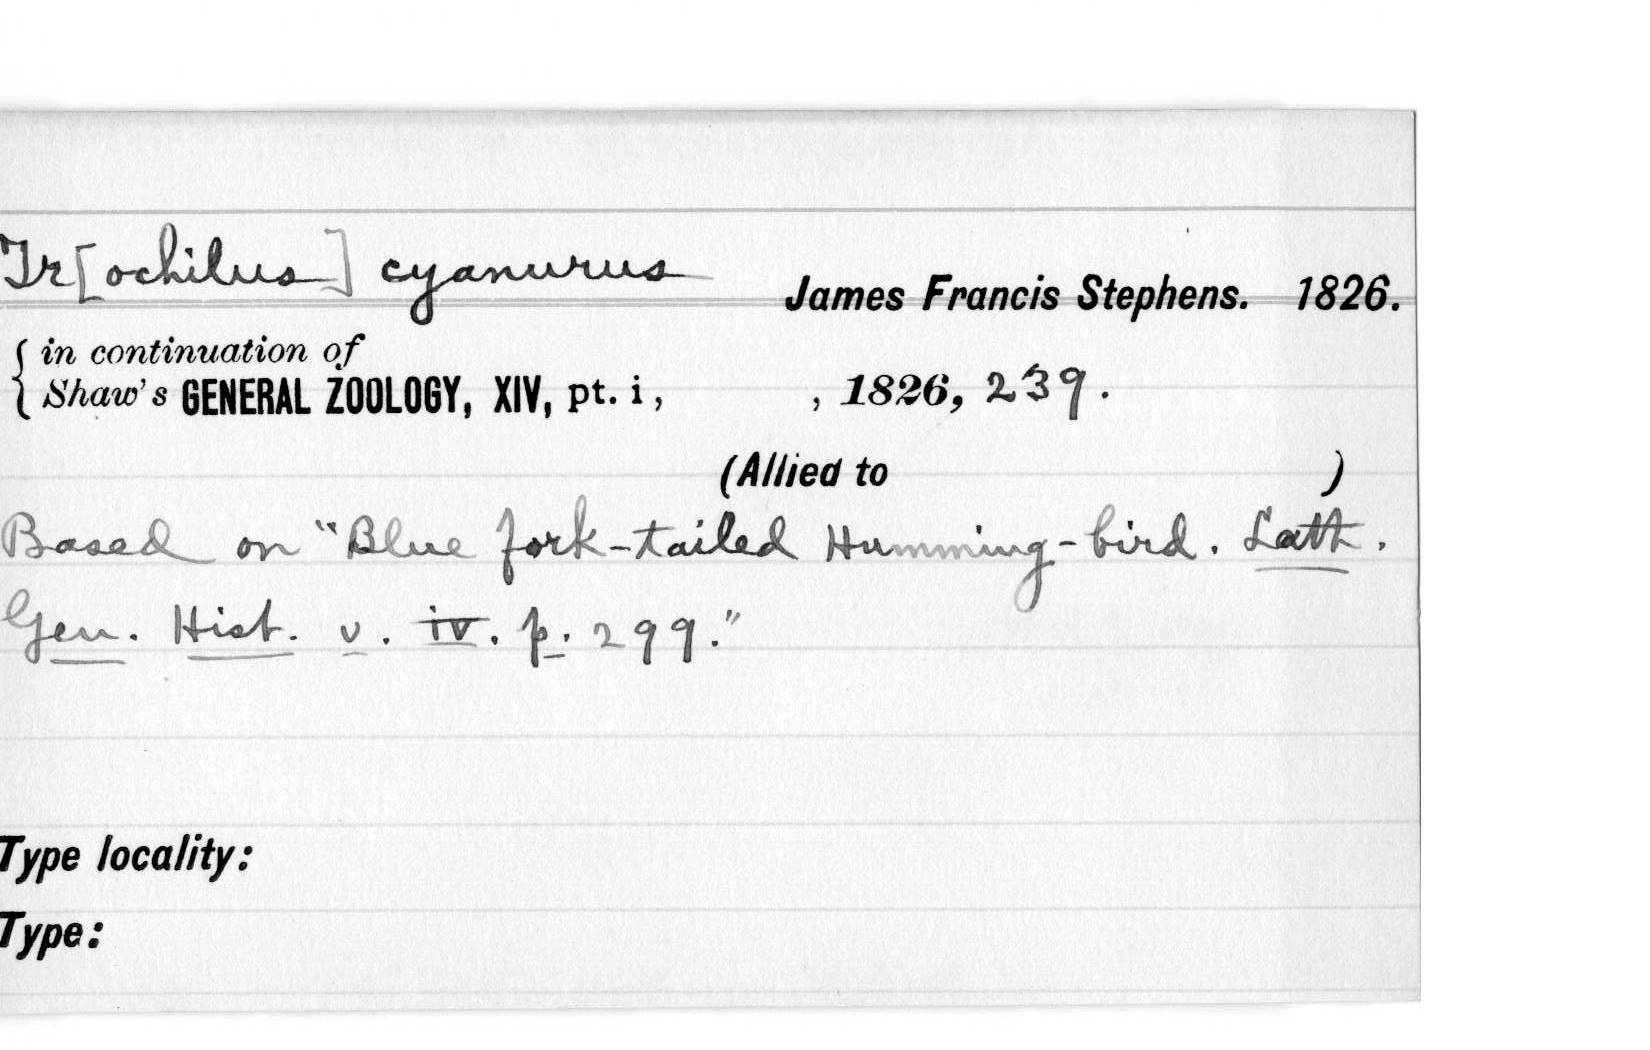 Tr[ochilus] cyanurus
James Francis Stephens. 1826.
{ in continuation of
Shaw's GENERAL ZOOLOGY, XIV, pt. i, , 1826, 239.
(Allied to )
Based on "Blue fork-tailed Humming-bird. Lath.
Gen. Hist. v. iv. p. 299."
Type locality:
Type: